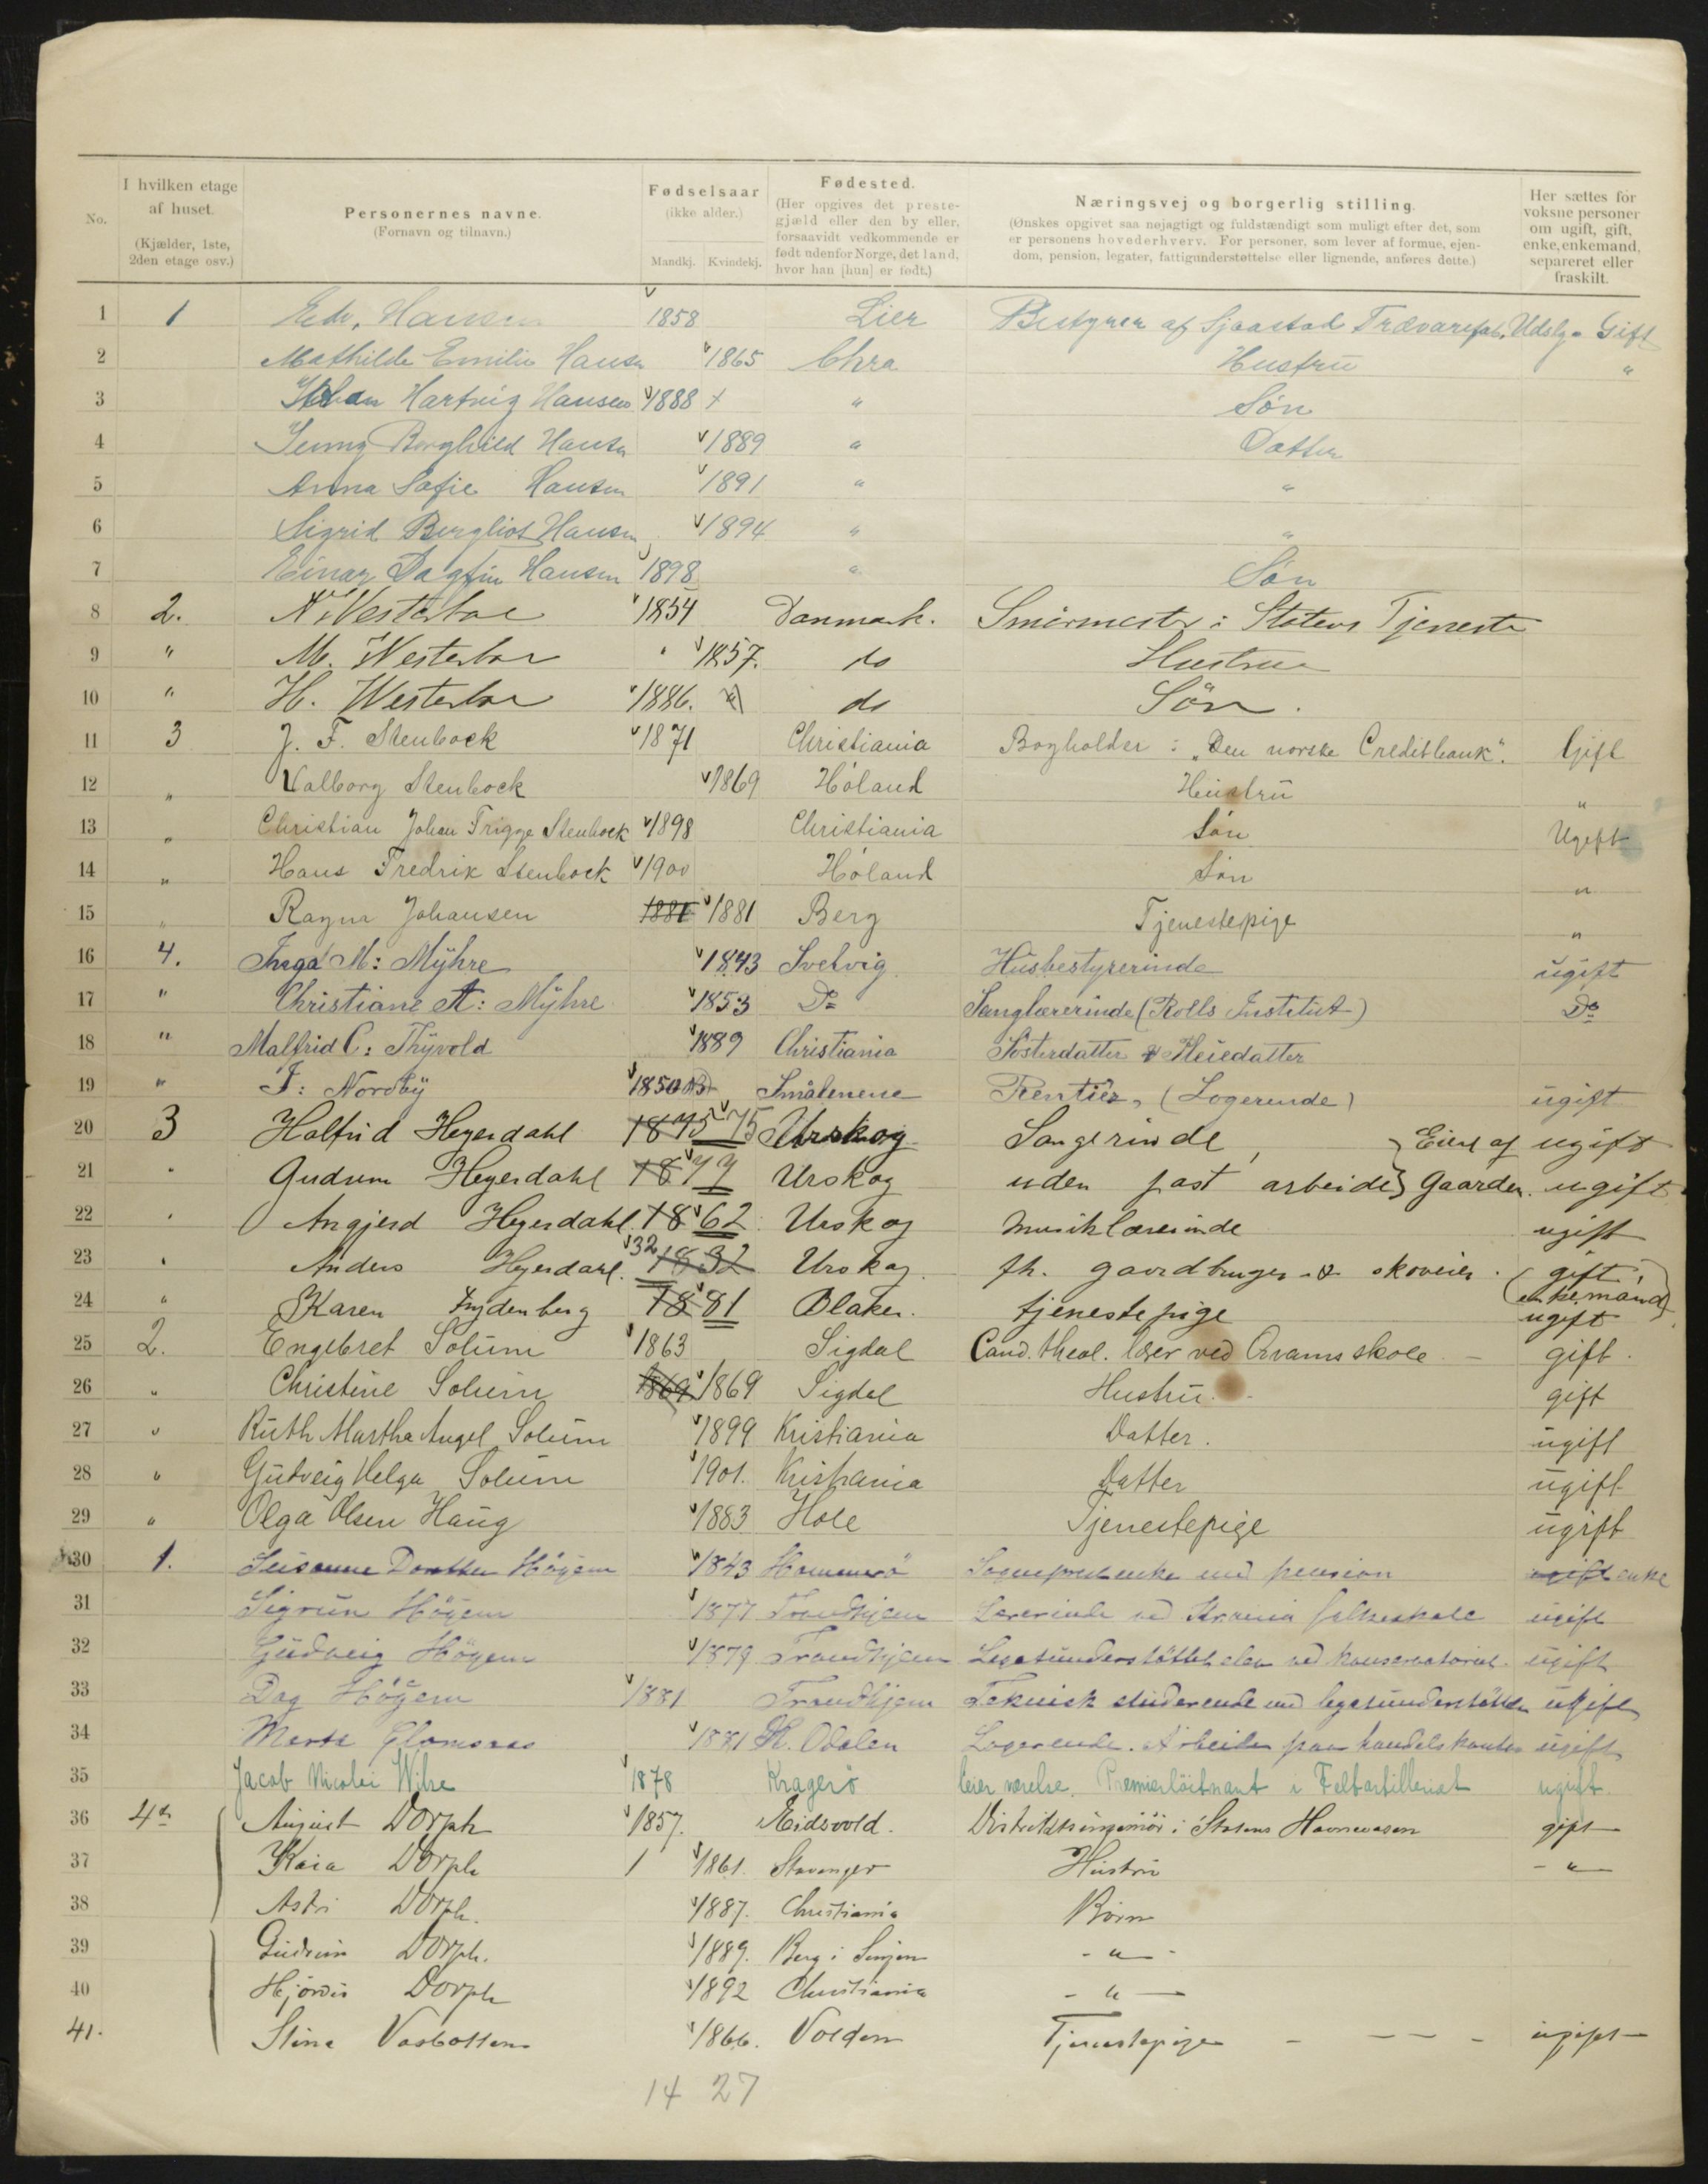 No. I hvilken etage af huset. (Kjælder, 1ste, 2den etage osv.) Personernes navne. (Fornavn og tilnavn.) Fødselsaar (ikke alder.) Mandkj. Kvindekj. Fødested. (Her opgives det prestegjæld eller den by eller, forsaavidt vedkommende er født udenfor Norge, det land, hvor han [hun] er født.) Næringsvej og borgerlig stilling. (Ønskes opgivet saa nøjagtigt og fuldstændigt som muligt efter det, som er personens hovederhverv. For personer, som lever af formue, ejendom, pension, legater, fattigunderstøttelse eller lignende, anføres dette.) Her sættes for voksne personer om ugift, gift, enke, enkemand, separeret eller fraskilt.
1 1 Edv. Hansen 1858 Lier Bestyrer af Sjaastad Trævarefab. Udslg. Gift
2 Mathilde Emilie Hansen 1865 Chra Hustru "
3 Johan Hartvig Hansen 1888 + " Søn
4 Jenny Borghild Hansen 1889 " Datter
5 Anna Sofie Hansen 1891 " "
6 Sigrid Bergliot Hansen 1894 " "
7 Einar Dagfin Hansen 1898 " Søn
8 2. N. Westerboe 1854 Danmark. Smörmester i Statens Tjeneste
9 " M. Westerboe 1857. do Hustru
10 " H. Westerboe 1886. do Sön.
11 3 J. F. Stenbock 1871 Christiania Bogholder i "Den norske Creditbank". Gift
12 " Valborg Stenbock 1869 Höland Hustru "
13 " Christian Johan Trigge Stenbock 1898 Christiania Sön Ugift
14 " Hans Fredrik Stenbock 1900 Höland Sön "
15 " Ragna Johansen 1881 1881 Berg Tjenestepige "
16 4. Inga M: Mÿhre 1843 Svelvig Husbestyrerinde ugift
17 " Christiane A: Mÿhre 1853 Do Sanglærerinde (Rolls Institut) Do
18 " Malfrid C: Thÿvold 1889 Christiania Sösterdatter & Pleiedatter
19 " F: Nordbÿ 1850 Smålenene Rentier, (Logerende) ugift
20 3 Halfrid Heyerdahl 1875 75 Urskog Sangerinde, } Eiere af ugift
21 " Gudrun Heyerdahl 1877 Urskog uden fast arbeide } Gaarden. ugift
22 " Angjerd Heyerdahl. 1862 Urskog Musiklærerinde ugift
23 " Anders Heyerdahl. 32 1832 Urskog. fh. gaardbruger & skoveier. gift, (enkemand)
24 " Karen Frydenberg 1881 Blaker. tjenestepige ugift
25 2. Engebret Solum 1863 Sigdal Cand. theol. lærer ved Qvams skole – gift.
26 " Christine Solum 1869 1869 Sigdal Hustru. gift
27 " Ruth Martha Angel Solum 1899 Kristiania Datter. ugift
28 " Gudveig Helga Solum 1901. Kristiania Datter ugift
29 " Olga Olsen Haug 1883 Hole Tjenestepige ugift
30 1. Susanne Dorothea Högem 1843 Hammerö Sogneprestenke med pension ugift enke
31 Sigrun Högem 1877 Trondhjem Lærerinde ved Kr.ania folkeskole ugift
32 Gudveig Högem 1879 Trondhjem Legatunderstöttet elev ved konservatoriet. ugift
33 Dag Högem 1881 Trondhjem Teknisk studerende med legatunderstöttelse ugift
34 Marta Glomsaas 1881 N. Odalen Logerende. Arbeider paa handelskontor ugift
35 Jacob Nicolai Wilse 1878 Kragerö leier værelse. Premierlöitnant i Feltartilleriet ugift.
36 4de August Dorph 1857. Eidsvold. Distriktsingeniör i Statens Havnevæsen gift
37 Kaia Dorph 1 1861. Stavanger Hustru - " -
38 Astri Dorph. 1887. Christiania Börn
39 Gudrun Dorph. 1889. Berg i Senjen - " -
40 Hjördis Dorph 1892 Christiania - " -
41. Stina Vasbotten 1866. Volden Tjenestepige - - - - ugift
14 27